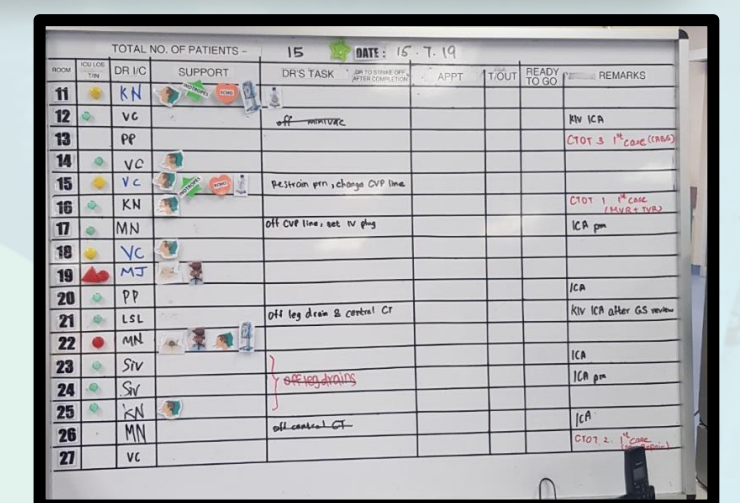 TOTAL NO. OF PATIENTS - 15 DATE: 15.7.19
ROOM ICU LOS DR I/C SUPPORT DR'S TASK DR TO STRIKE OFF AFTER COMPLETION APPT T/OUT READY TO GO REMARKS
11 KN INOTROPES ECMO
12 VC off minivac KIV ICA
13 PP CTOT 3 1st case (CABG)
14 VC
15 VC INOTROPES ECMO Restrain prn, change CVP line
16 KN CTOT 1 1st case (MVR + TVR)
17 MN off CVP line, set IV plug ICA pm
18 VC
19 MJ
20 PP ICA
21 LSL off leg drain & central CT KIV ICA after GS review
22 MN
23 Siv ICA
24 Siv off leg drains ICA pm
25 KN
26 MN off central CT ICA
27 VC CTOT 2 1st case